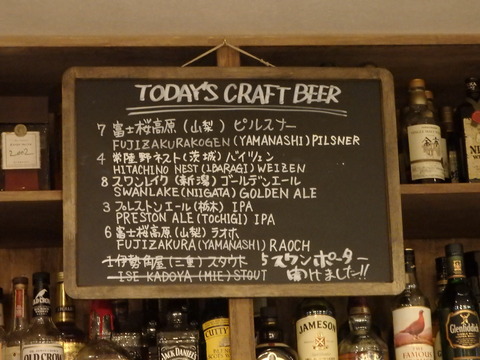 TODAY'S CRAFT BEER
7 富士桜高原(山梨)ピルスナー
FUJIZAKURAKOGEN (YAMANASHI) PILSNER
4 常陸野ネスト(茨城)バイツェン
HITACHINO NEST (IBARAGI) WEIZEN
8 スワンレイク(新潟)ゴールデンエール
SWANLAKE (NIIGATA) GOLDEN ALE
3 プレストンエール(栃木) IPA
PRESTON ALE (TOCHIGI) IPA
6 富士桜高原(山梨)ラオホ
FUJIZAKURA (YAMANASHI) RAOCH
1 伊勢角屋(三重)スタウト
ISE KADOYA (MIE) STOUT
5 スワンポーター
開けました!!
OLD CROW
JACK DANIEL'S
CUTTY
JAMESON
THE FAMOUS
Glenfiddich